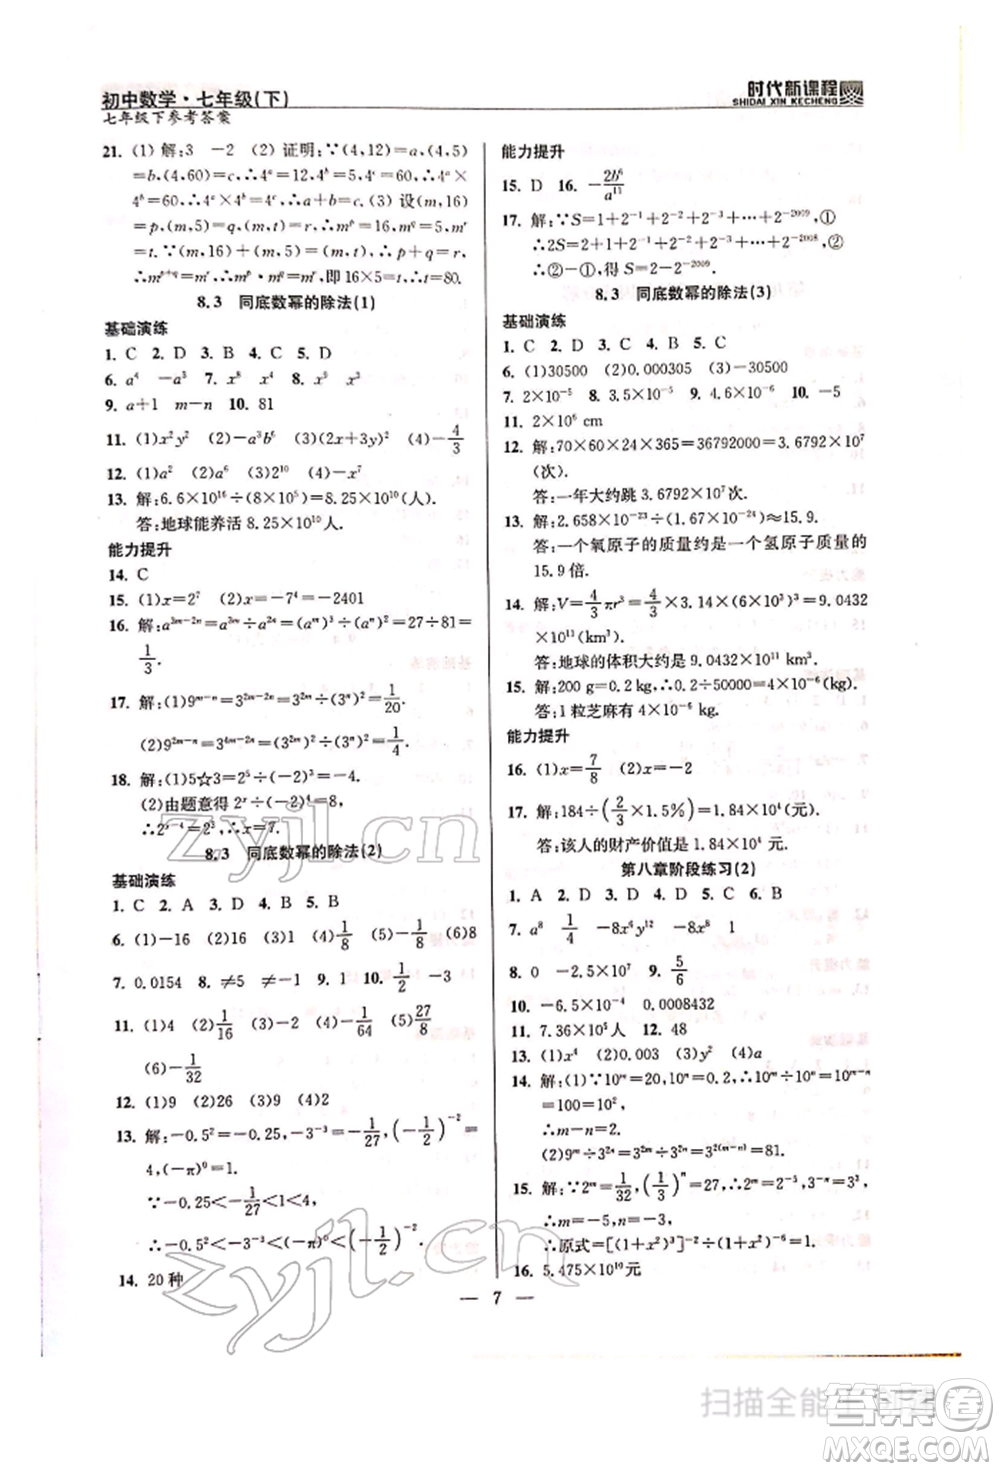 初中数学·七年级(下)
七年级下参考答案
时代新课程
SHIDAI XIN KECHENG
21. (1) 解:3 -2 (2) 证明:∵(4,12)=a,(4,5)
=b,(4,60)=c,∴4ᵃ=12,4ᵇ=5,4ᶜ=60,∴4ᵃ×
4ᵇ=60,∴4ᵃ×4ᵇ=4ᶜ,∴a+b=c. (3) 设(m,16)
=p,(m,5)=q,(m,t)=r,∴mᵖ=16,m^q=5,mʳ
=t.∵(m,16)+(m,5)=(m,t),∴p+q=r,
∴m^{p+q}=mʳ,∴mᵖ·m^q=mʳ,即16×5=t,∴t=80.
8.3 同底数幂的除法(1)
基础演练
1. C 2. D 3. B 4. C 5. D
6. a⁴ -a³ 7. x⁸ x⁴ 8. x⁴ x³
9. a+1 m-n 10. 81
11. (1)x²y² (2)-a³b⁶ (3)(2x+3y)² (4)-4/3
12. (1)a² (2)a⁶ (3)2¹⁰ (4)-x⁷
13. 解:6.6×10¹⁶÷(8×10⁵)=8.25×10¹⁰(人).
答:地球能养活 8.25×10¹⁰人.
能力提升
14. C
15. (1)x=2⁷ (2)x=-7⁴=-2401
16. 解:a^{3m-2n}=a^{3m}÷a^{2n}=(aᵐ)³÷(aⁿ)²=27÷81=
1/3.
17. 解:(1)9^{m-n}=3^{2m-2n}=3^{2m}÷(3ⁿ)²=1/20.
(2)9^{2m-n}=3^{4m-2n}=3^{4m}÷(3ⁿ)²=1/4.
18. 解:(1)5☆3=2⁵÷(-2)³=-4.
(2)由题意得 2ˣ÷(-2)⁴=8,
∴2^{x-4}=2³,∴x=7.
8.3 同底数幂的除法(2)
基础演练
1. C 2. A 3. D 4. B 5. D
6. (1)-16 (2)16 (3)-1/8 (4)1/8 (5)-8 (6)8
7. 0.0154 8. ≠5 ≠-1 9. 1 10. 1/4 -3
11. (1)4 (2)1/16 (3)-2 (4)-1/64 (5)27/8
(6)-1/32
12. (1)9 (2)6 (3)9 (4)2
13. 解:-0.5²=-0.25,-3⁻³=-1/27,(-1/2)⁻²=
4,(-π)⁰=1.
∵-0.25<-1/27<1<4,
∴-0.5²<-3⁻³<(-π)⁰<(-1/2)⁻²
14. 20 种
能力提升
15. D 16. -2b⁶/a¹¹
17. 解:∵S=1+2⁻¹+2⁻²+2⁻³+…+2⁻²⁰⁰⁹,①
∴2S=2+1+2⁻¹+2⁻²+…+2⁻²⁰⁰⁸,②
∴②-①,得 S=2-2⁻²⁰⁰⁹
8.3 同底数幂的除法(3)
基础演练
1. C 2. D 3. A 4. B 5. C
6. (1)30500 (2)0.000305 (3)-30500
7. 2×10⁻⁵ 8. 3.5×10⁻⁵ 9. 4.6×10⁻⁶ 10. -5
11. 2×10⁶ cm
12. 解:70×60×24×365=36792000=3.6792×10⁷
(次).
答:一年大约跳 3.6792×10⁷次.
13. 解:2.658×10⁻²³÷(1.67×10⁻²⁴)≈15.9.
答:一个氧原子的质量约是一个氢原子质量的
15.9 倍.
14. 解:V=4/3πr³=4/3×3.14×(6×10³)³=9.0432
×10¹¹(km³).
答:地球的体积大约是 9.0432×10¹¹ km³.
15. 解:200 g=0.2 kg,∴0.2÷50000=4×10⁻⁶(kg).
答:1 粒芝麻有 4×10⁻⁶ kg.
能力提升
16. (1)x=7/8 (2)x=-2
17. 解:184÷(2/3×1.5%)=1.84×10⁴(元).
答:该人的财产价值是 1.84×10⁴ 元.
第八章阶段练习(2)
1. A 2. D 3. D 4. C 5. D 6. B
7. a⁸ 1/4 -8x⁶y¹² -8x⁸ 1
8. 0 -2.5×10⁷ 9. 5/6
10. -6.5×10⁻⁴ 0.0008432
11. 7.36×10⁵人 12. 48
13. (1)x⁴ (2)0.003 (3)y² (4)a
14. 解:(1)∵10ᵐ=20,10ⁿ=0.2,∴10ᵐ÷10ⁿ=
100=10²,
∴m-n=2.
(2)9ᵐ÷3^{2n}=3^{2m}÷3^{2n}=3^{2(m-n)}=3⁴=81.
15. 解:∵2ᵐ=1/32,(1/3)ⁿ=27,∴2ᵐ=2⁻⁵,3⁻ⁿ=3³,
∴m=-5,n=-3.
∴原式=[(1+x²)⁻⁵]⁻³=(1+x²)¹⁵
16. 5.475×10¹⁰元
— 7 —
zyjl.cn
zyjl.cn
扫描全能王 创建
答案卷
MXQE.COM